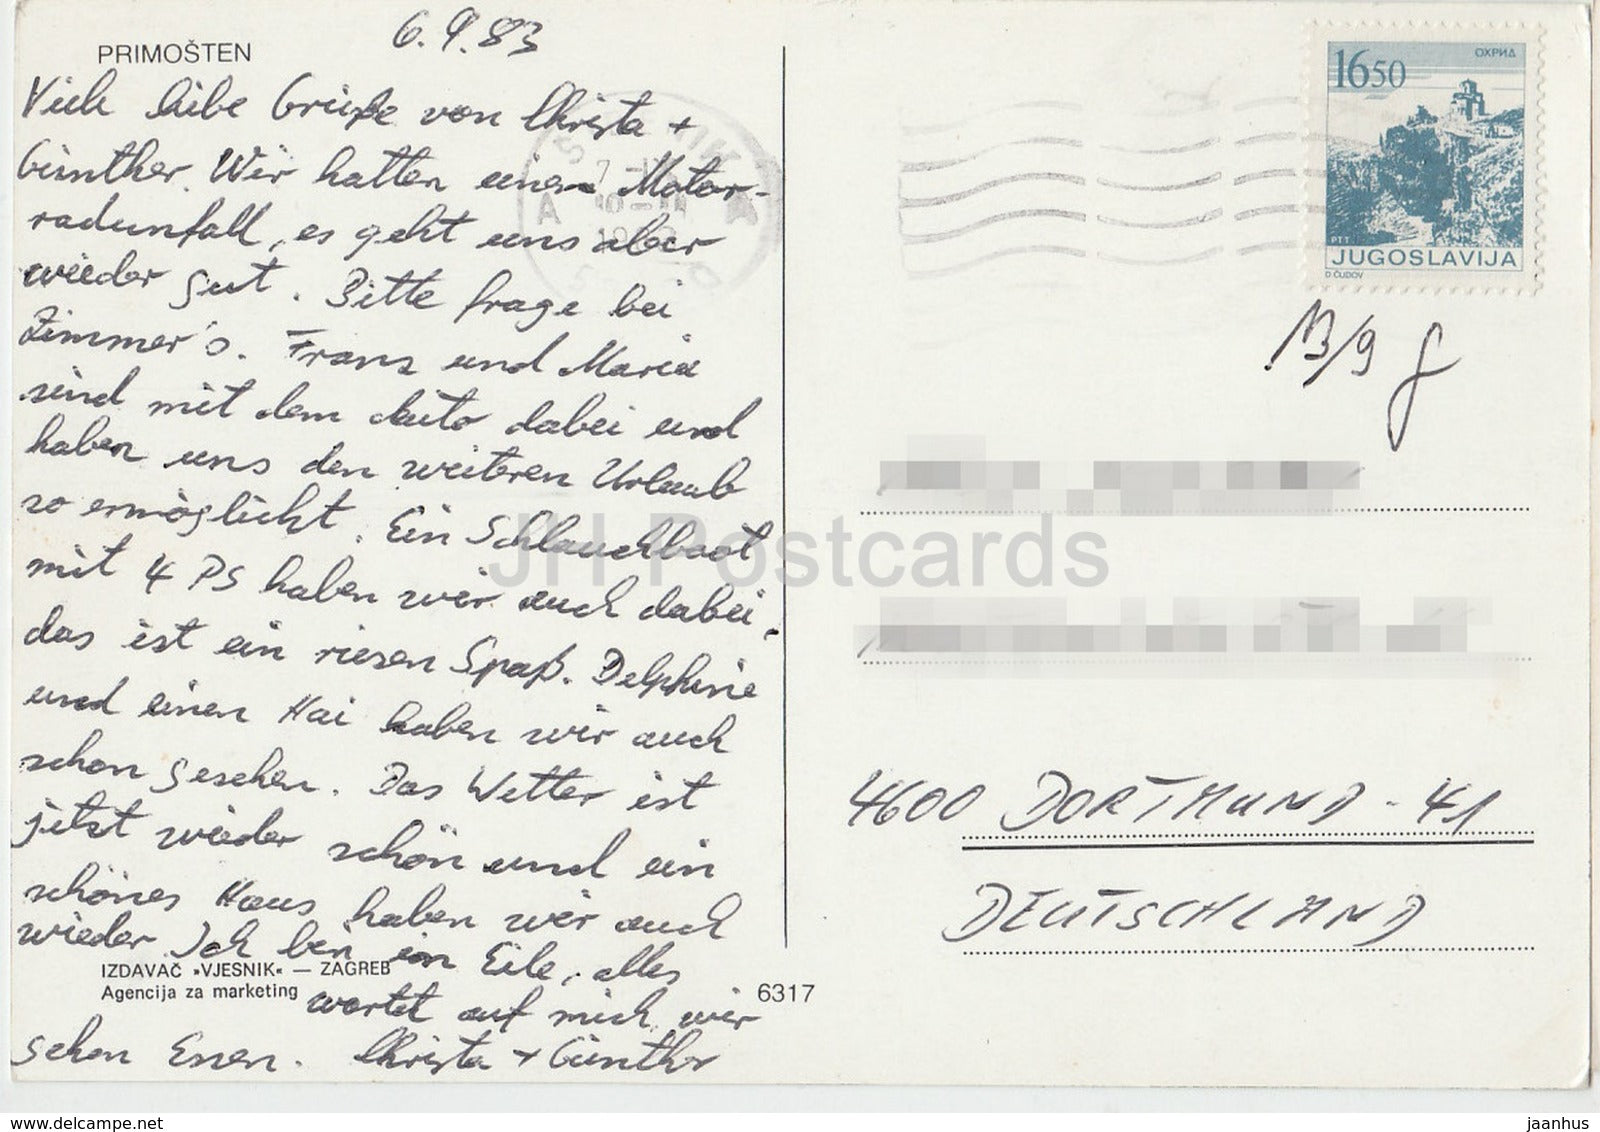 PRIMOŠTEN
6.9.83
Viele liebe Grüße von Christa +
Günther. Wir hatten einen Motor-
radunfall, es geht uns aber
wieder gut. Bitte frage bei
Zimmer's. Franz und Maria
sind mit dem Auto dabei und
haben uns den weiteren Urlaub
so ermöglicht. Ein Schlauchboot
mit 4 PS haben wir auch dabei,
das ist ein riesen Spaß. Delphine
und einen Hai haben wir auch
schon gesehen. Das Wetter ist
jetzt wieder schön und ein
schönes Haus haben wir auch
wieder. Ich bin in Eile, alles
wartet auf mich, wir
gehen Essen. Christa + Günther
IZDAVAČ »VJESNIK« — ZAGREB
Agencija za marketing
6317
1650
ОХРИД
PTT
JUGOSLAVIJA
D ČUDOV
13/9
4600 DORTMUND - 41
DEUTSCHLAND
JH Postcards
www.delcampe.net
jaanhus